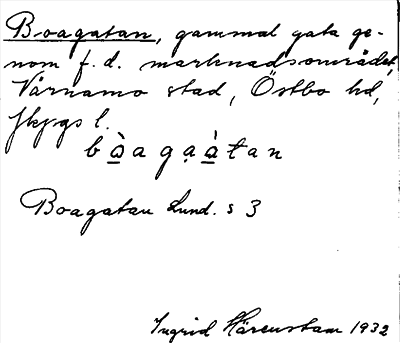 Boagatan, gammal gata ge-
nom f. d. marknadsområdet,
Värnamo stad, Östbo hd,
Jkpgs l.
bòagaàtan
Boagatan Lund. s 3
Ingrid Härenstam 1932